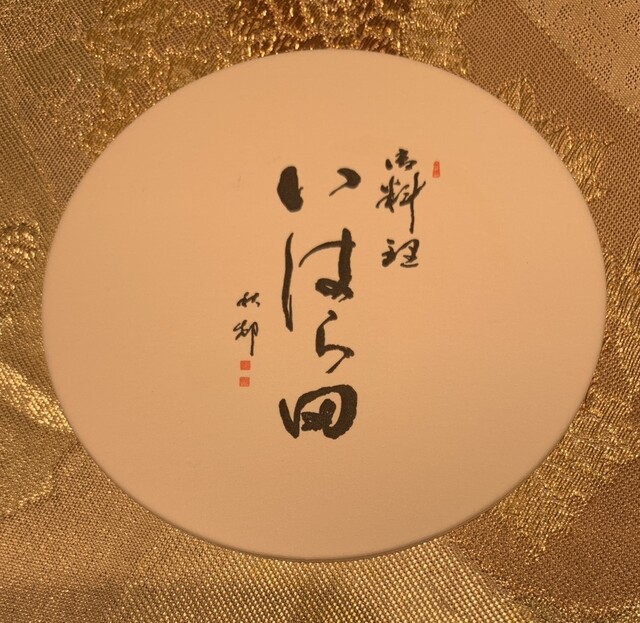 御料理
いはら田
秋邨